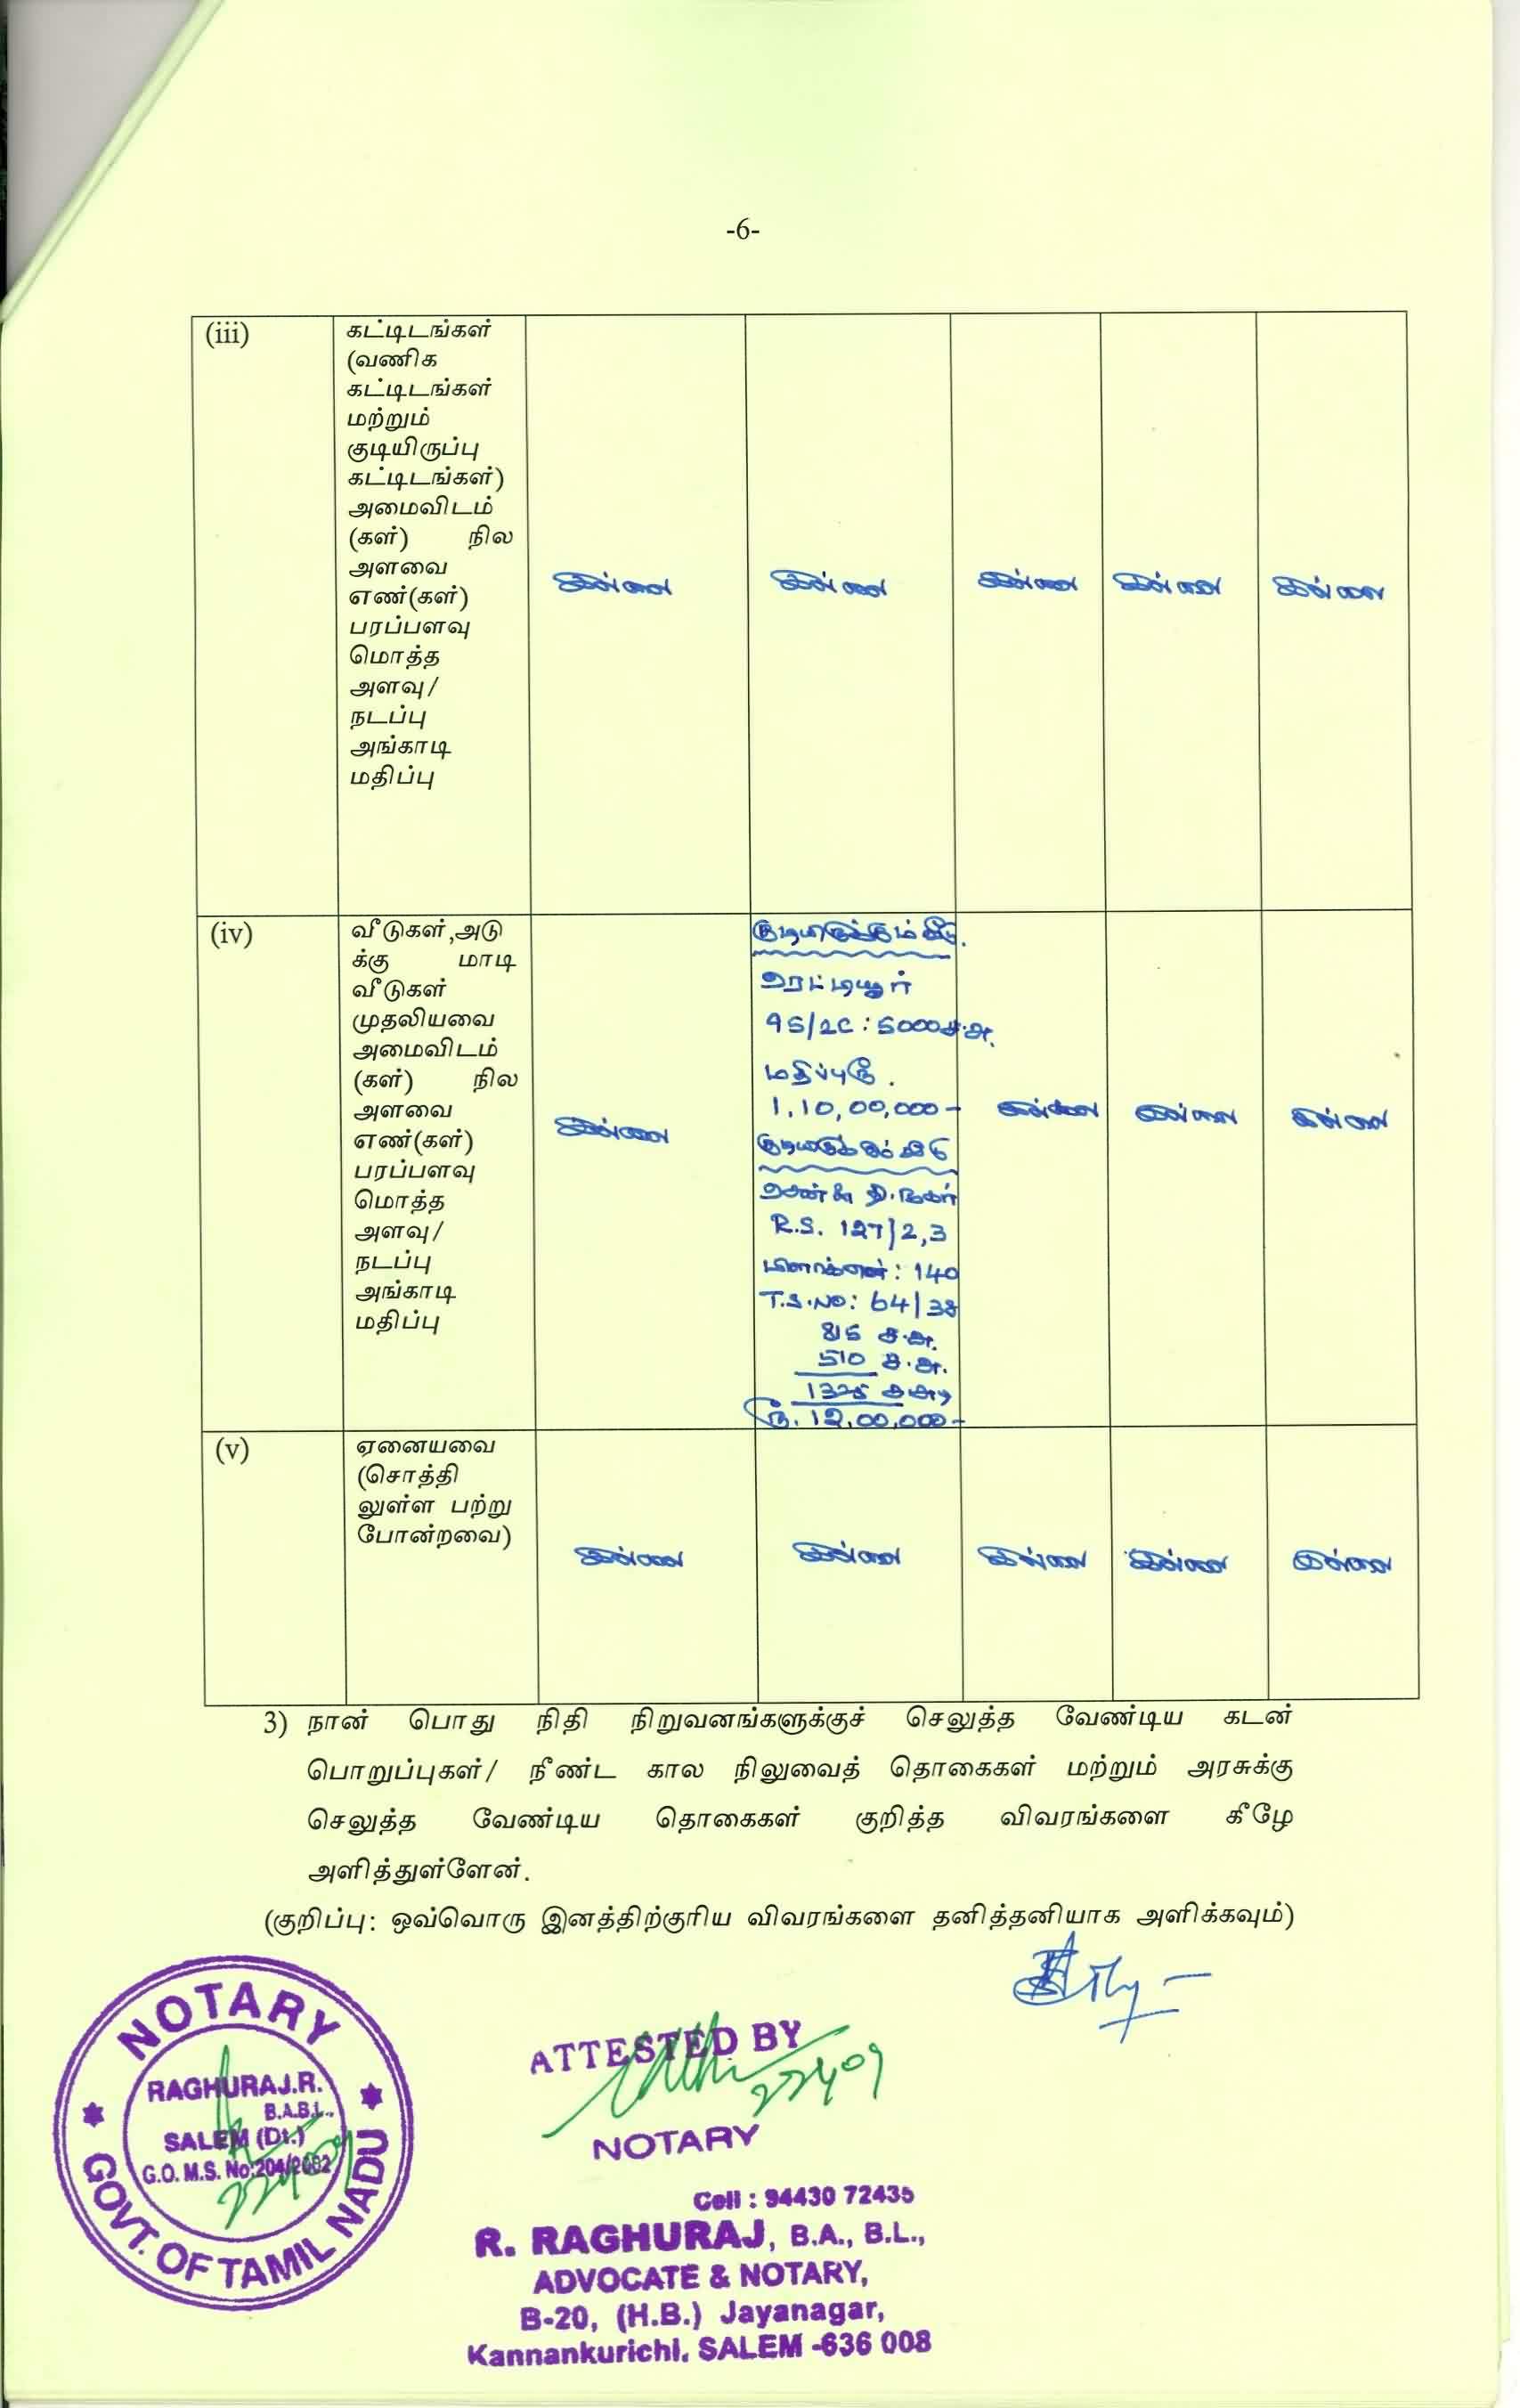 -6-
(iii)
கட்டிடங்கள்
(வணிக
கட்டிடங்கள்
மற்றும்
குடியிருப்பு
கட்டிடங்கள்)
அமைவிடம்
(கள்) நில
அளவை
எண்(கள்)
பரப்பளவு
மொத்த
அளவு/
நடப்பு
அங்காடி
மதிப்பு
இல்லை இல்லை இல்லை இல்லை இல்லை
(iv)
வீடுகள்,அடு
க்கு மாடி
வீடுகள்
முதலியவை
அமைவிடம்
(கள்) நில
அளவை
எண்(கள்)
பரப்பளவு
மொத்த
அளவு/
நடப்பு
அங்காடி
மதிப்பு
இல்லை
குடியிருக்கும் வீடு.
ரெட்டியூர்
95/2C : 5000 ச.அ.
மதிப்பு ரூ.
1,10,00,000-
குடியிருக்கும் வீடு
R.S. 127/2,3
: 140
T.S.NO: 64/38
815 ச.அ.
510 ச.அ.
1325 ச.அடி
ரூ. 12,00,000-
இல்லை இல்லை இல்லை
(v)
ஏனையவை
(சொத்தி
லுள்ள பற்று
போன்றவை)
இல்லை இல்லை இல்லை இல்லை இல்லை
3) நான் பொது நிதி நிறுவனங்களுக்குச் செலுத்த வேண்டிய கடன்
பொறுப்புகள்/ நீண்ட கால நிலுவைத் தொகைகள் மற்றும் அரசுக்கு
செலுத்த வேண்டிய தொகைகள் குறித்த விவரங்களை கீழே
அளித்துள்ளேன்.
(குறிப்பு: ஒவ்வொரு இனத்திற்குரிய விவரங்களை தனித்தனியாக அளிக்கவும்)
NOTARY
RAGHURAJ.R.
B.A.B.L.,
SALEM (Dt.)
G.O. M.S. No:204/2002
GOVT. OF TAMIL NADU
ATTESTED BY
NOTARY
Cell : 94430 72435
R. RAGHURAJ, B.A., B.L.,
ADVOCATE & NOTARY,
B-20, (H.B.) Jayanagar,
Kannankurichi, SALEM -636 008